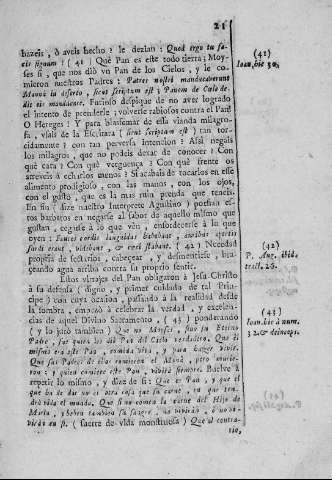 21
hazeis, ò aveis hecho? le dezian: Quod ergo tu fa-
cis signum? (41) Què Pan es este todo tierra; Moy-
ses sì, que nos diò vn Pan de los Cielos, y le co-
mieron nuestros Padres: Patres nostri manducaverunt
Manna in deserto, sicut scriptum est; Panem de Cælo de-
dit eis manducare. Furioso despique de no aver logrado
el intento de prenderle; volverse rabiosos contra el Pan!
O Hereges! Y para blasfemar de essa vianda milagro-
sa, vsais de la Escritura (sicut scriptum est) tan tor-
cidamente? con tan perversa intencion? Assi negais
los milagros, que no podeis dexar de conocer? Con
què cara? Con què verguença? Con què frente os
atreveis à echarlos menos? Si acabais de tocarlos en esse
alimento prodigioso, con las manos, con los ojos,
con el gusto, que es la mas ruin prenda que teneis.
En fin (dize nuestro Interprete Agustino) porfian es-
tos barbaros en negarse al sabor de aquello mismo que
gustan, cegarse à lo que vèn, ensordecerse à lo que
oyen: Fauces cordis languidas habebant, auribus apertis
surdi erant, videbant, & cæci stabant. (42) Necedad
propria de sectarios, cabeçear, y desmentirse, bra-
ceando agua arriba contra su proprio sentir.
Estos vltrajes del Pan obligaron à Jesu Christo
à su defensa (digno, y primer cuidado de tal Prin-
cipe) con cuya ocasion, passando à la realidad desde
la sombra, empezò à celebrar la verdad, y excelen-
cias de aquel Divino Sacramento, (43) ponderando
(y lo jurò tambien) Que no Moyses, sino su Eterno
Padre, fue quien les diò Pan del Cielo verdadero. Que èl
mismo era este Pan, comida viva, y para hazer vivir.
Que sus Padres de ellos comieron el Manà, pero murie-
ron: y quien comiere este Pan, vivirà siempre. Buelve à
repetir lo mismo, y dize de sì: Que es Pan, y que el
que ha de dàr no es otra cosa que su carne, en que ten-
drà vida el mundo. Que si no comen la carne del Hijo de
Maria, y beben tambien su sangre, no viviràn, ò no vi-
viràn en sì. (suerte de vida monstruosa) Que al contra-
rio,
(41)
Ioan. hic 30.
(42)
P. Aug. ibid.
tract. 26.
(43)
Ioan. hic à num.
32. & deinceps.